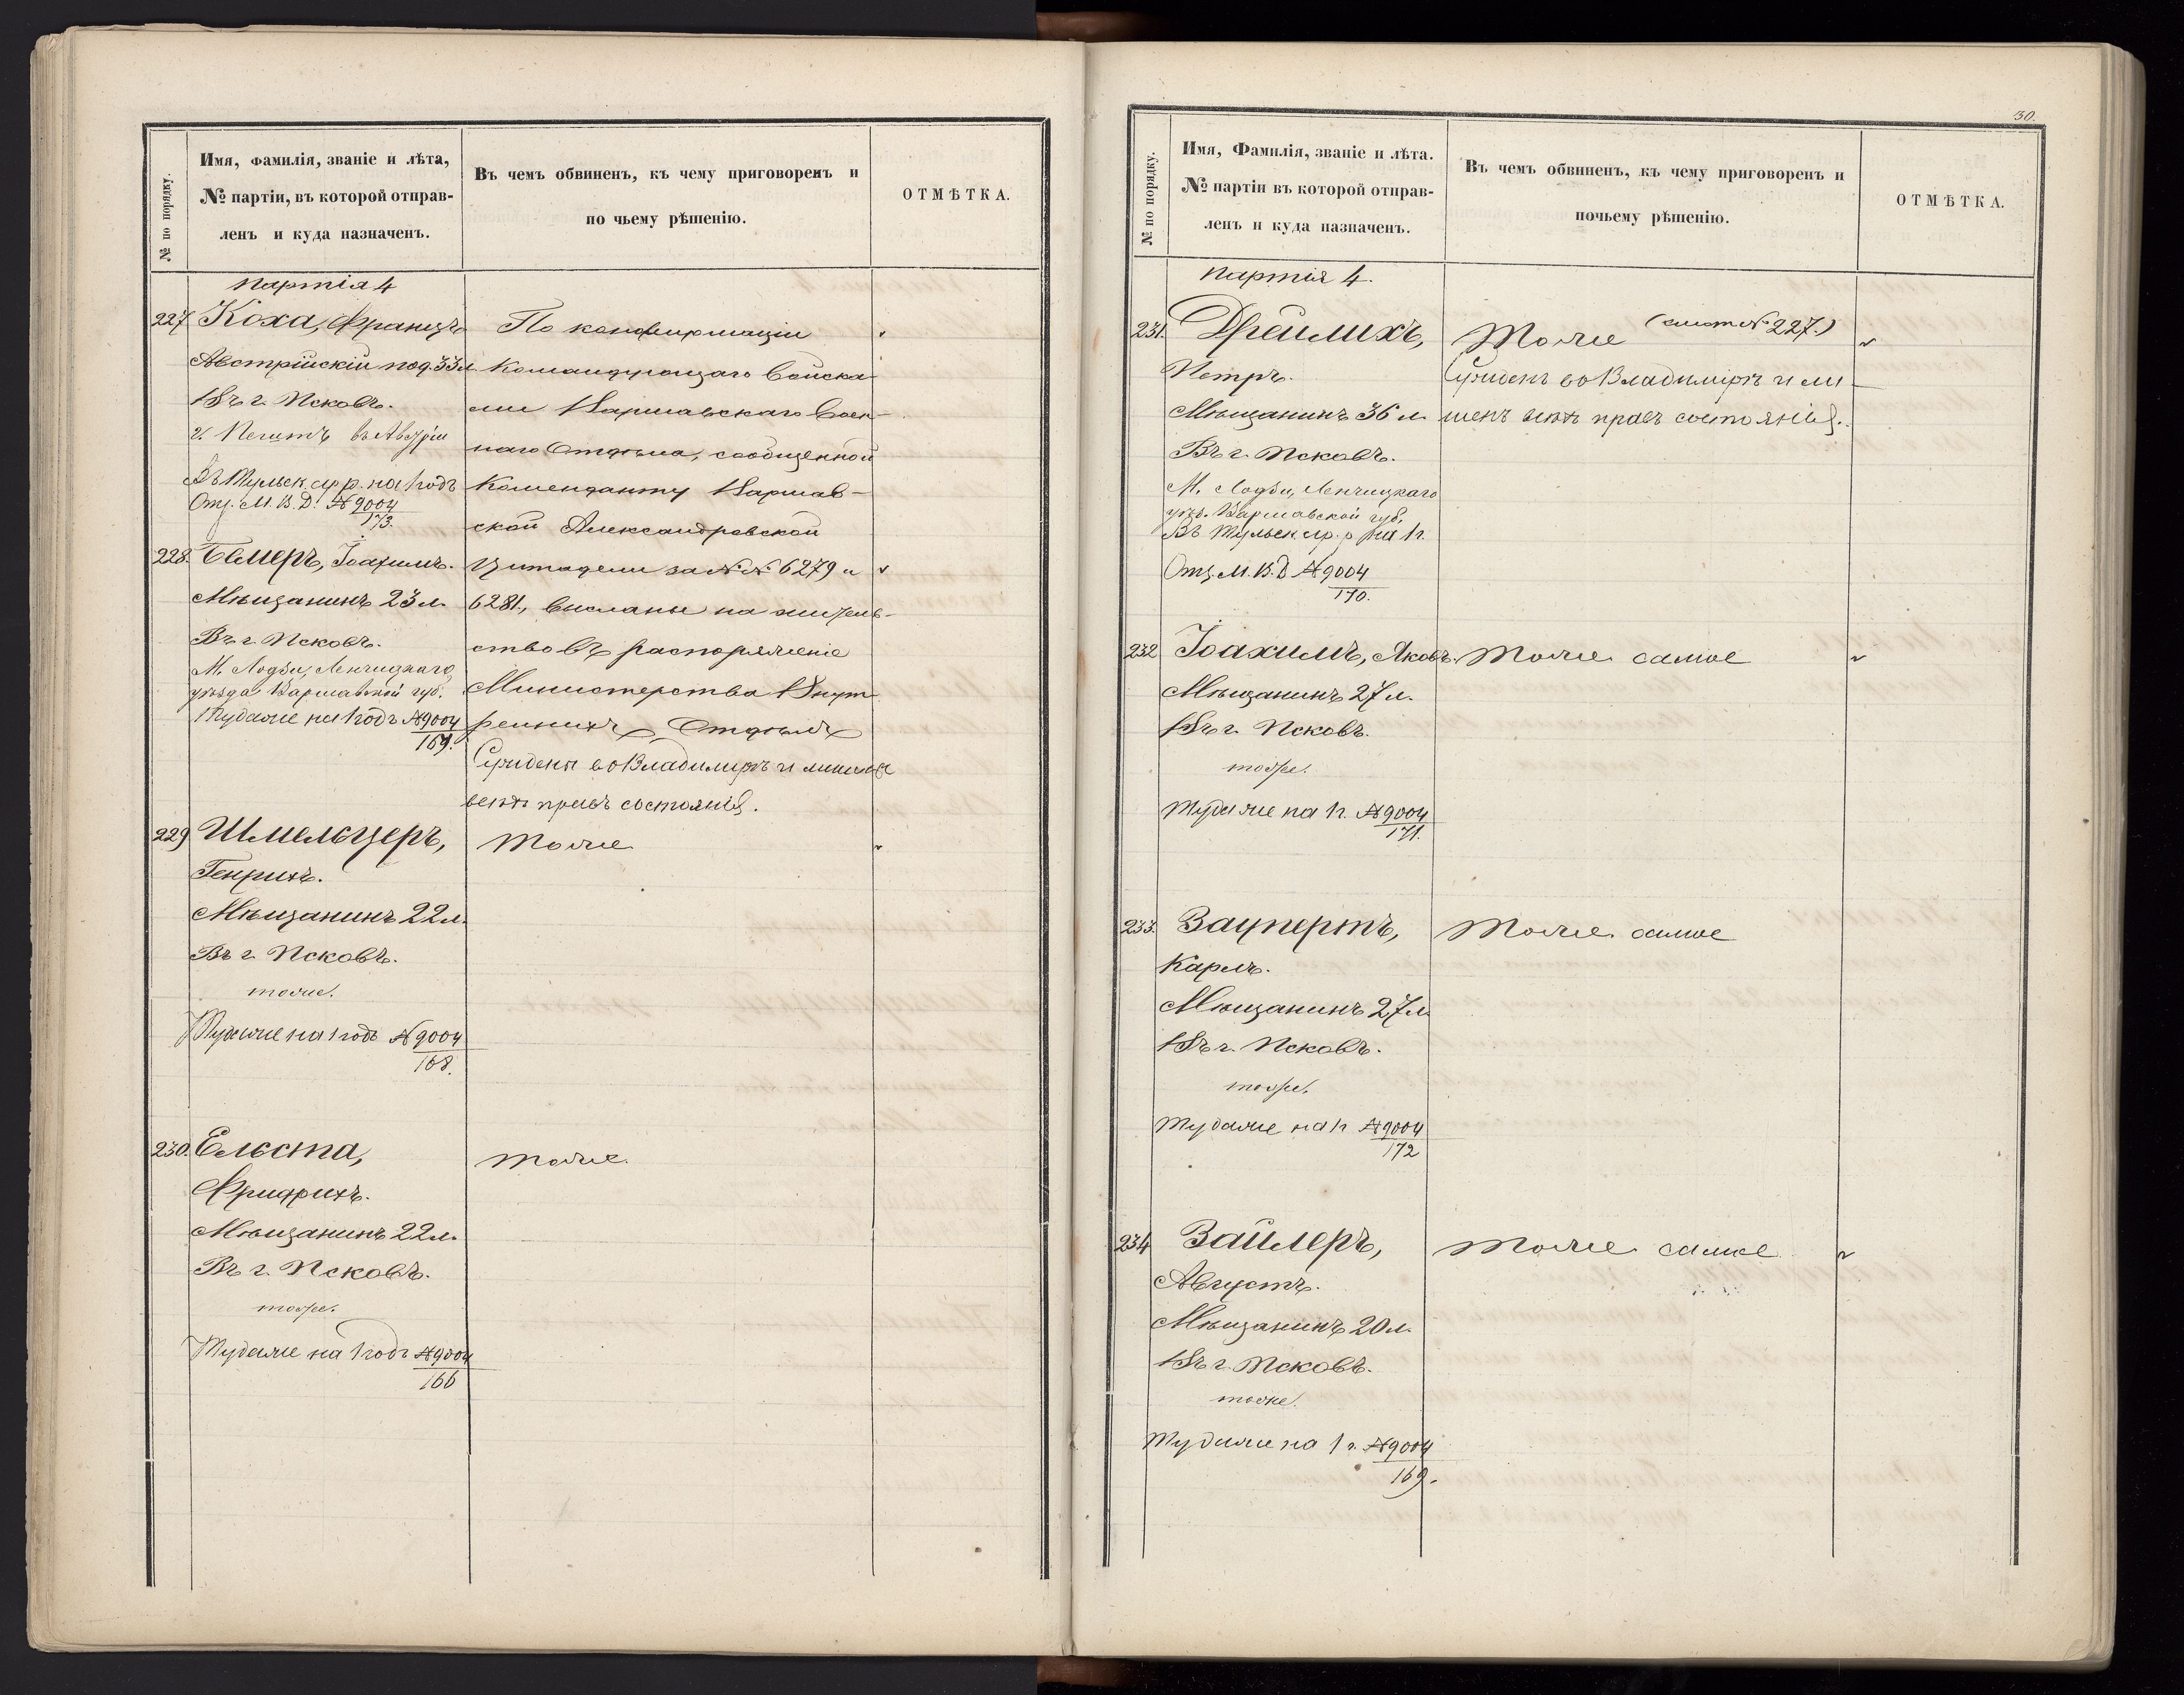 № по порядку.
Имя, фамилія, званіе и лѣта,
№ партіи, въ которой отправ-
ленъ и куда назначенъ.
Въ чемъ обвиненъ, къ чему приговоренъ и
по чьему рѣшенію.
ОТМѢТКА.
партія 4
227 Коха, Францъ
Австрійскій под. 33 л.
Въ г. Псковъ.
г. Пештъ въ Австріи
Въ Тульск. гр. р. на 1 годъ
Отз. М. В. Д. № 9004
173.
По конфирмаціи
Командующаго войска-
ми Варшавскаго воен-
наго Отдѣла, сообщенной
Коменданту Варшав-
ской Александровской
Цитадели за №№ 6279 и
6281, высланы на житель-
ство въ распоряженіе
Министерства Внут-
реннихъ Отдѣлъ
Сужденъ во Владиміръ и лишенъ
всѣхъ правъ состоянія.
228. Бемеръ, Іоахимъ.
Мѣщанинъ 23 л.
Въ г. Псковъ.
М. Лодзи, Ленчицкаго
уѣзда Варшавской губ.
Туда же на 1 годъ № 9004
167.
229 Шмельцеръ,
Генрихъ.
Мѣщанинъ 22 л.
Въ г. Псковъ.
тоже.
Туда же на 1 годъ № 9004
168.
Тоже
230. Ельста,
Фридрихъ.
Мѣщанинъ 22 л.
Въ г. Псковъ.
тоже.
Туда же на 1 годъ № 9004
166
тоже.
30.
№ по порядку.
Имя, Фамилія, званіе и лѣта.
№ партіи въ которой отправ-
ленъ и куда назначенъ.
Въ чемъ обвиненъ, къ чему приговоренъ и
почьему рѣшенію.
ОТМѢТКА.
партія 4.
231. Дрейлихъ,
Петръ.
Мѣщанинъ 36 л.
Въ г. Псковъ.
М. Лодзи, Ленчицкаго
уѣз. Варшавской губ.
Въ Тульск. гр. р на 1 г.
Отз. М. В. Д № 9004
170.
Тоже (смот № 227.)
Сужденъ во Владиміръ и ли-
шенъ всѣхъ правъ состоянія.
232 Іоахимъ, Яковъ.
Мѣщанинъ 27 л.
Въ г. Псковъ.
тоже.
Туда же на 1 г. № 9004
171.
Тоже самое
233. Заупертъ,
Карлъ.
Мѣщанинъ 27 л.
Въ г. Псковъ.
тоже.
Туда же на 1 г № 9004
172
Тоже самое
234 Зайлеръ,
Августъ.
Мѣщанинъ 20 л.
Въ г. Псковъ.
тоже.
Туда же на 1 г. № 9004
169.
Тоже самое